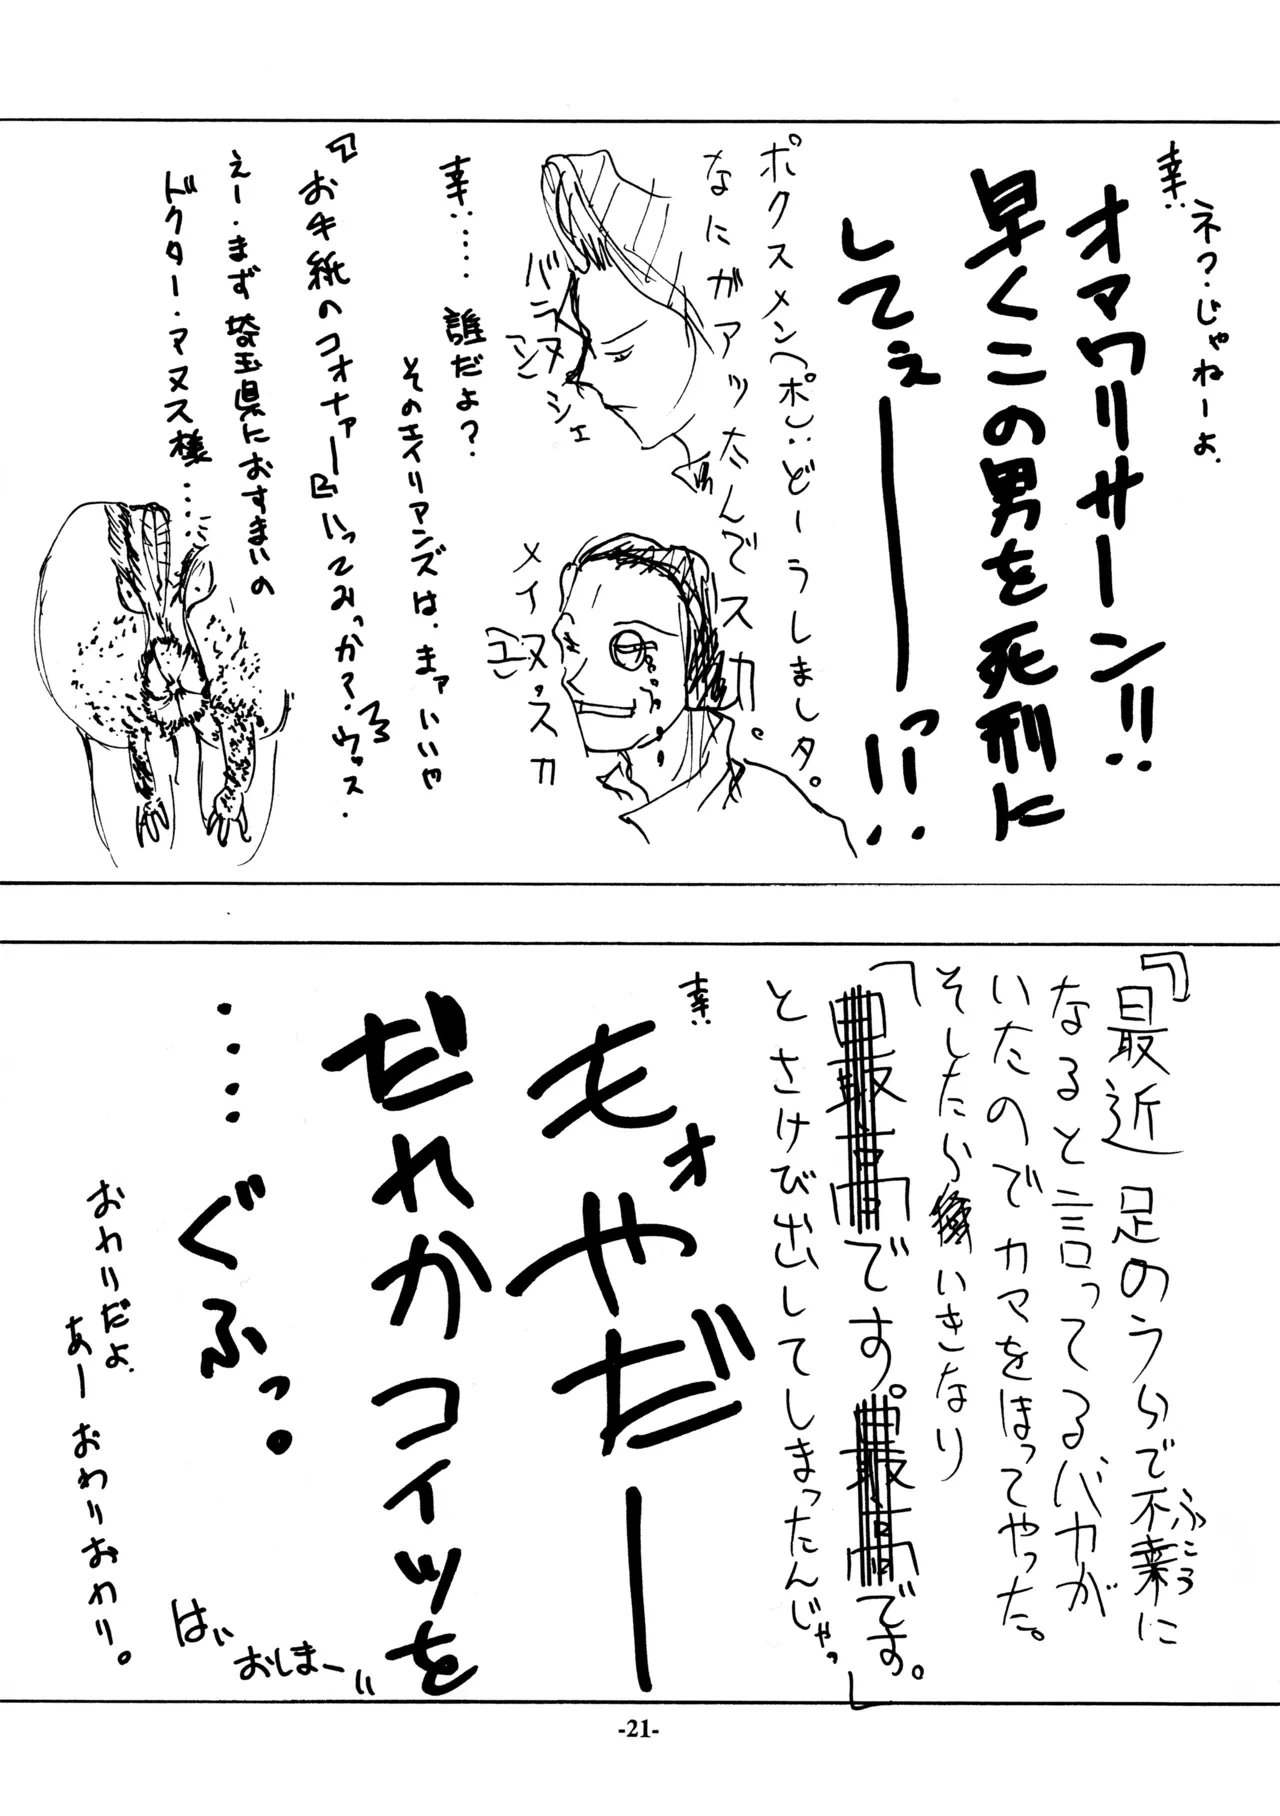 幸:ネ?・じゃねーよ.
オマワリサーン!!
早くこの男を死刑に
してぇーーっ!!
ポクスメン(ポ):どーうしましタ。
なにがアッたんでスカ。
バニヌシェ
メイヌッスカ
幸:… 誰だよ?
そのエイリアンズは、まァいいや
『お手紙のコォナァー』いってみっか?ウッス.
えー.まず埼玉県におすまいの
ドクター・アヌス様……
『最近足のうらで不幸に
ふこう
なると言ってるバカが
いたのでカマをほってやった。
そしたらいきなり
「最高です。最高です。」
とさけび出してしまったんじゃっ
幸:
もォやだー
だれかコイツを
…‥ぐふっ。
おわりだよ.
あーおわりおわり。
はい
おしまー!!
-21-